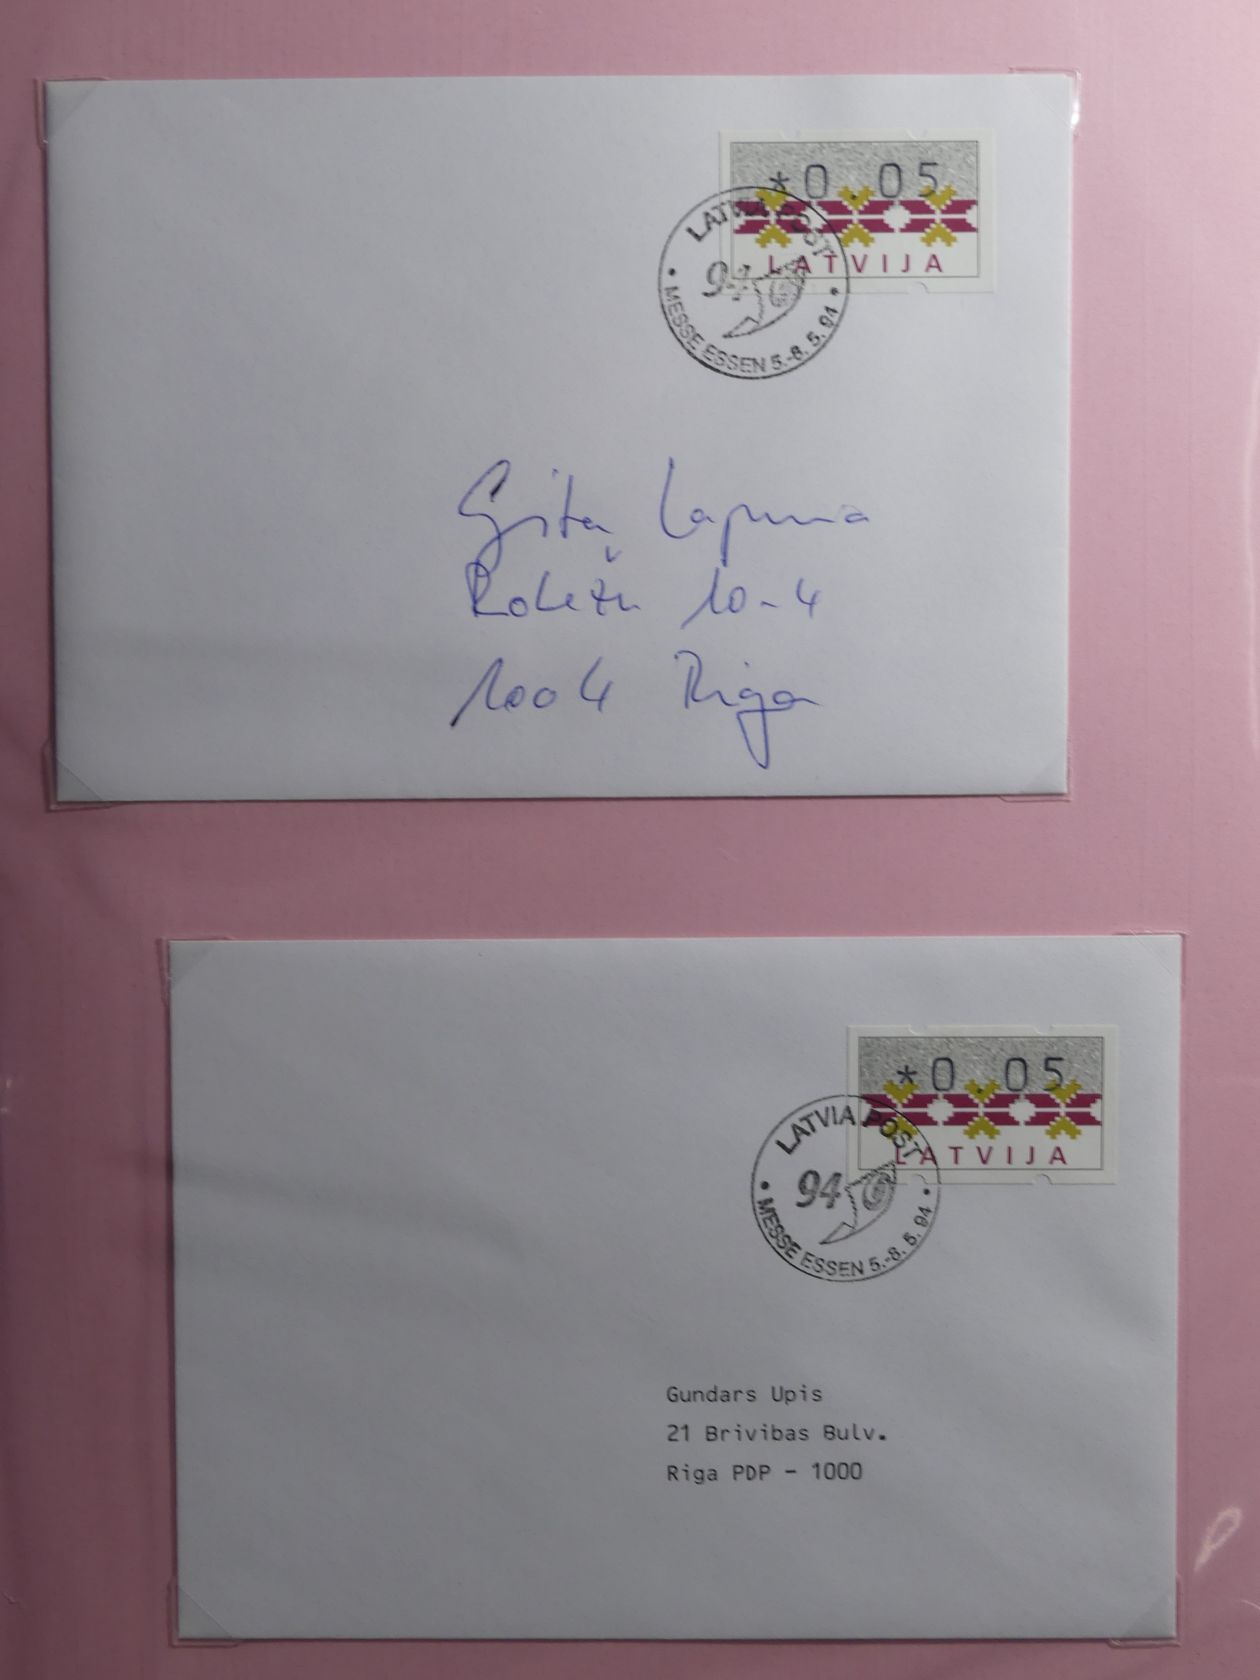 *0.05
LATVIJA
LATVIA POST
94
MESSE ESSEN 5.-8.5.94
Gita Lapina
10-4
1004 Riga
*0.05
LATVIJA
LATVIA POST
94
MESSE ESSEN 5.-8.5.94
Gundars Upis
21 Brivibas Bulv.
Riga PDP - 1000